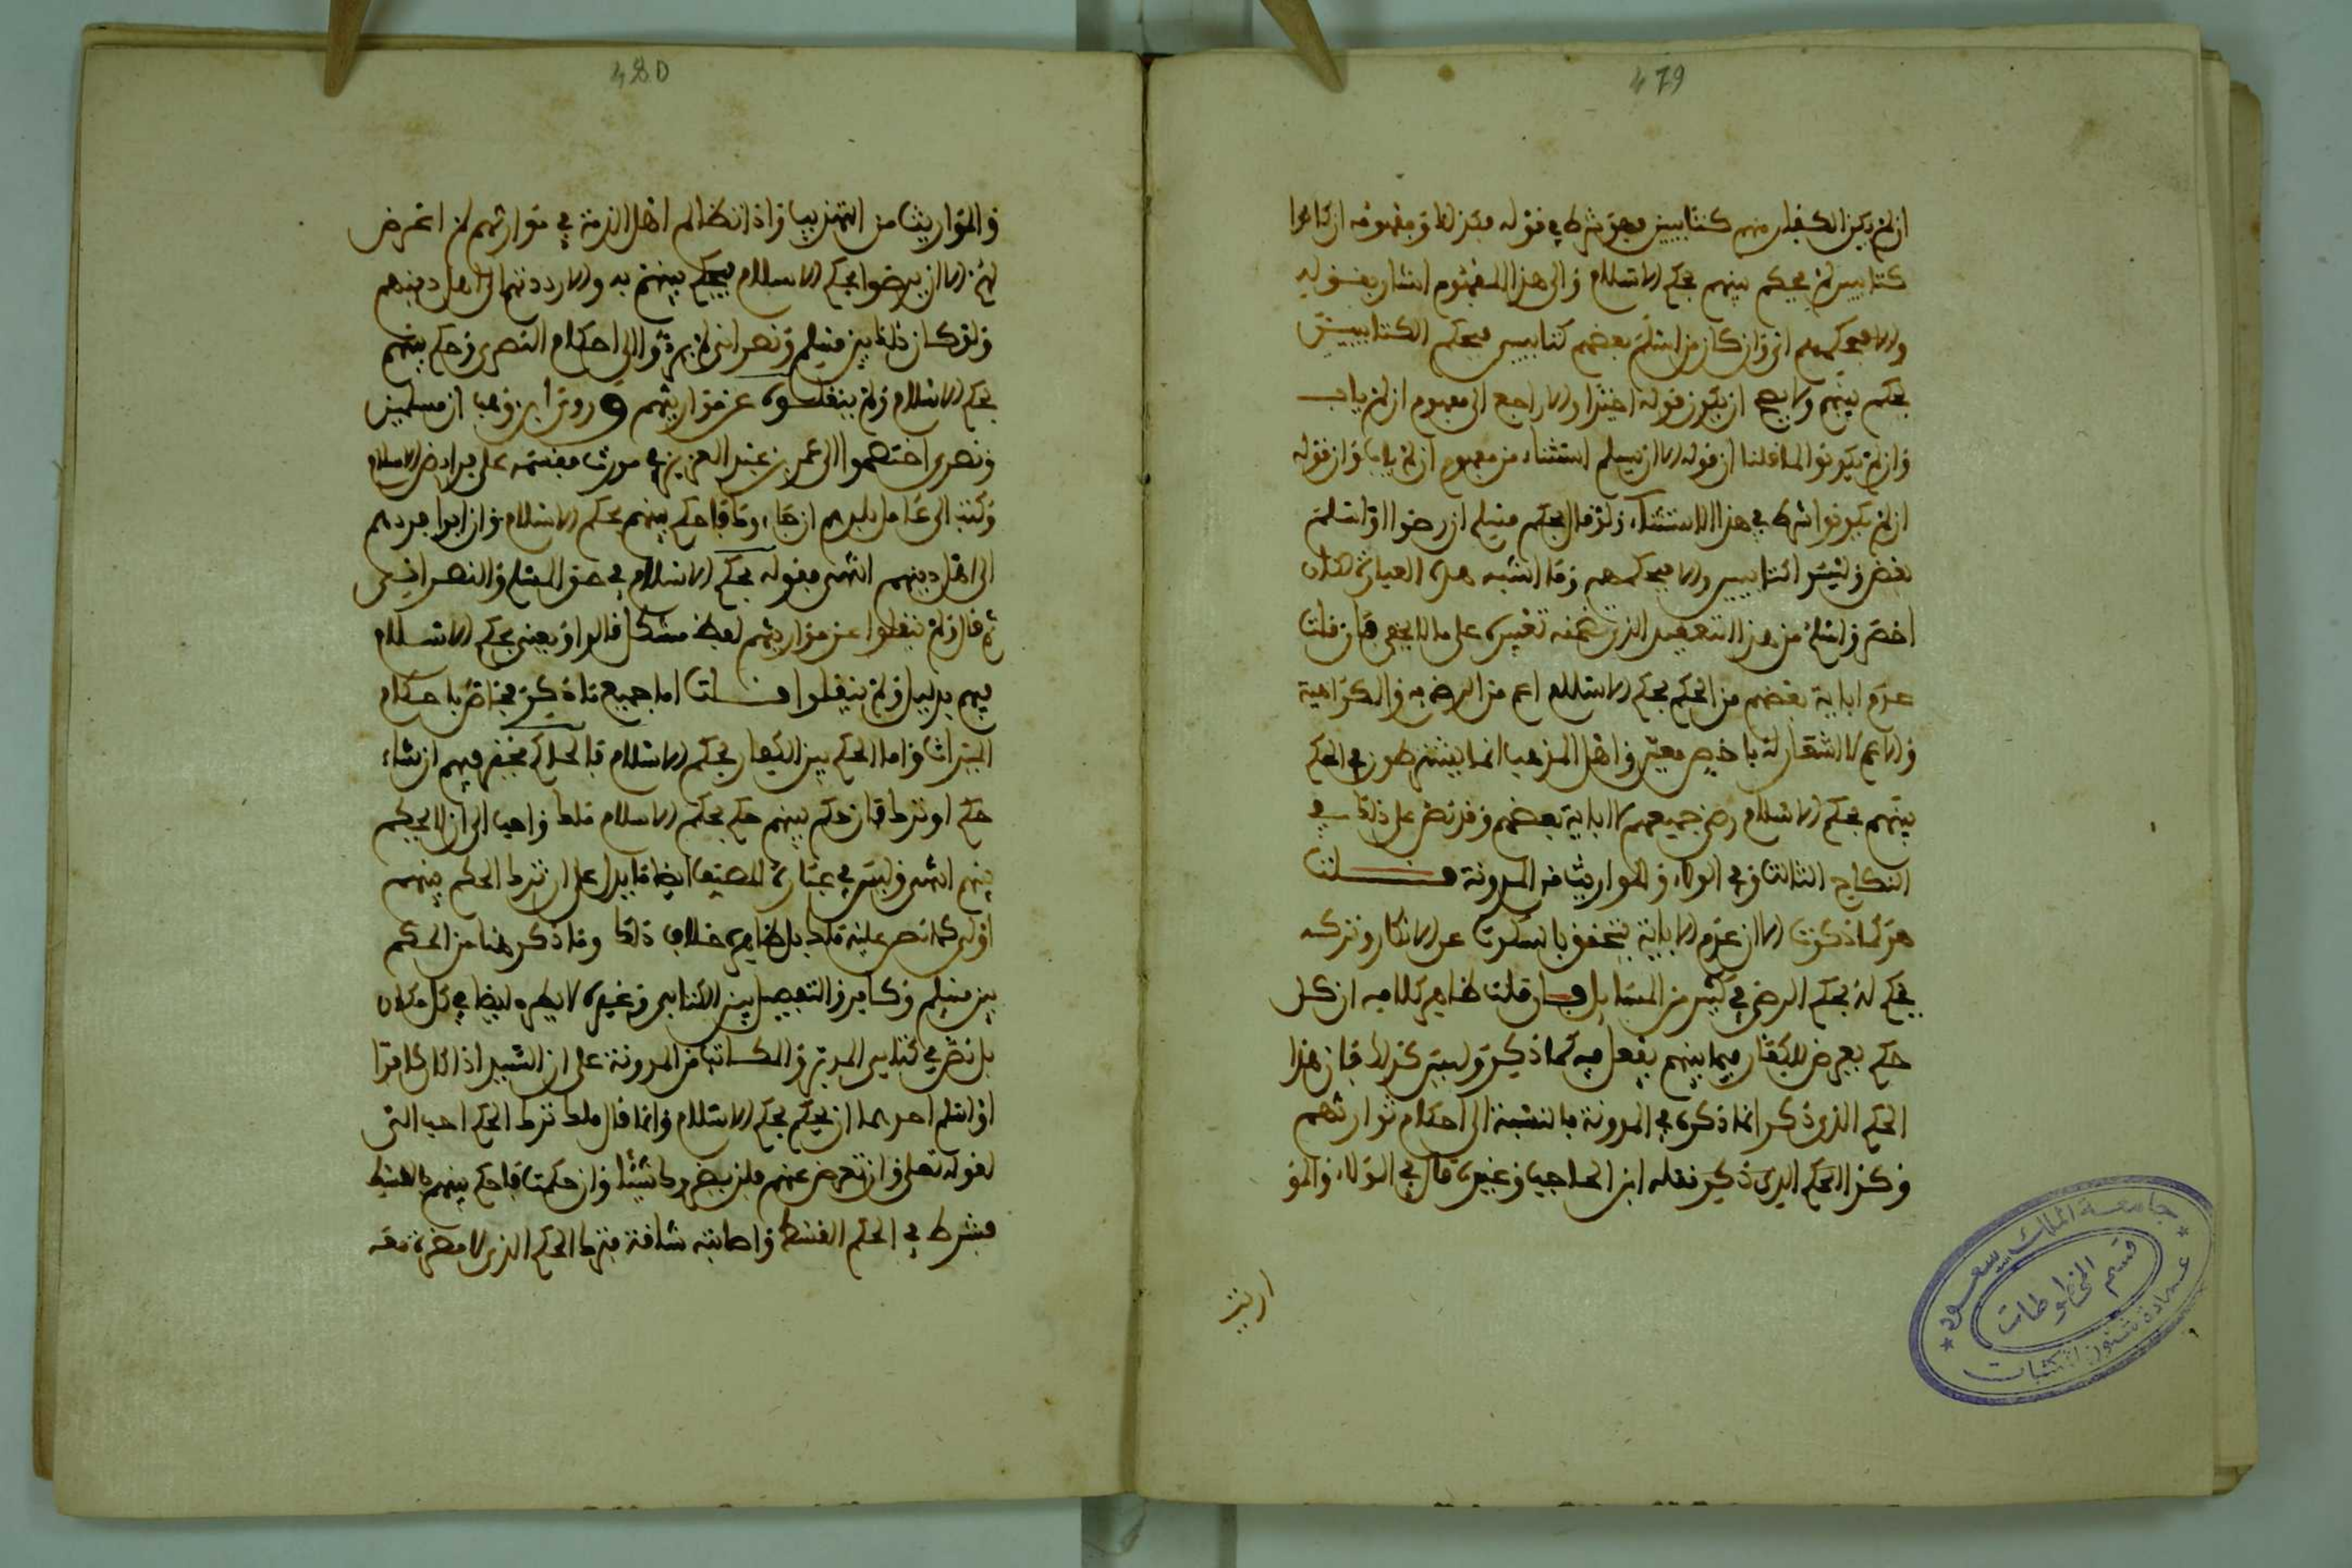 479
ان لم يكن الكفار منهم كتابيين فهو شرط في قوله فكذلك ومفهومه ان كانوا
كتابيين لم يحكم بينهم بحكم الاسلام والى هذا المفهوم اشار بقوله
والا فبحكمهم اي وان كان من اسلم بعضهم كتابيين فبحكم الكتابيين
يحكم بينهم ولا يصح ان يكون قوله اخيرا والا راجع الى مفهوم ان لم ياب
وان لم يكونوا لما قلنا ان قوله الا ان يسلم استثناء من مفهوم ان لم ياب وان قوله
ان لم يكونوا شرط في هذا الاستثناء ولو قال بحكم مسلم ان رضوا او اسلم
بعض وليسوا كتابيين والا فبحكمهم وما اشبه هذه العبارة لكان
اخصر واسلم من هذا التعقيد الذي تضمنه تعبيره على ما لا يخفى فان قلت
عدم اباية بعضهم من الحكم بحكم الاسلام اعم من الرضى به والكراهية
والاعم لا اشعار له باخص معين واهل المذهب انما يشترطون في الحكم
بينهم بحكم الاسلام رضى جميعهم لا اباية بعضهم وقد نص على ذلك في
النكاح الثالث وفي الولاء والمواريث من المدونة قلت
هو كما ذكرت الا ان عدم الاباية يتحقق بالسكوت عن الانكار وتركه
يحكم له بحكم الرضى في كثير من المسايل فان قلت ظاهر كلامه ان كل
حكم يعرض للكفار فيما بينهم يفعل فيه كما ذكر وليس كذلك فان هذا
الحكم الذي ذكر انما ذكره في المدونة بالنسبة الى احكام توارثهم
وكذا الحكم الذي ذكر نقله ابن الحاجب وغيره قال في الولاء والمو
اريث
جامعة الملك سعود
قسم المخطوطات
عمادة شئون المكتبات
480
والمواريث من التهذيب واذا تظالم اهل الذمة في مواريثهم لم اعرض
لهم الا ان يرضوا بحكم الاسلام فيحكم بينهم به والا رددتهم الى اهل دينهم
ولو كان ذلك بين مسلم ونصراني لم يردوا الى احكام النصرى وحكم بينهم
بحكم الاسلام ولم ينقلوا عن مواريثهم وروى ابن وهب ان مسلمين
ونصرى اختصموا الى عمر بن عبد العزيز في مورث فقسمه على فرايض الاسلام
وكتب الى عامل بلدهم ان جاءوك فاحكم بينهم بحكم الاسلام وان ابوا فردهم
الى اهل دينهم انتهى فقوله بحكم الاسلام في حق المسلم والنصراني
ثم قال ولم ينقلوا عن مواريثهم لفظ مشكل قالوا ويعني بحكم الاسلام
فيهم بدليل ولم ينقلوا قلت اما جميع ما ذكر فخاص باحكام
الميراث واما الحكم بين الكفار بحكم الاسلام فالحاكم مخير فيهم ان شاء
حكم او ترك فان حكم بينهم حكم بحكم الاسلام ملك واحب الي ان لا يحكم
بينهم انتهى وليس في عبارة المصنف ايضا ما يدل على ان ترك الحكم بينهم
اولى كما نص عليه ملك بل ظاهره خلاف ذلك وما ذكر هنا من الحكم
بين مسلم وكافر والتفصيل بين الكتابي وغيره لا يطرد ايضا في كل مكان
بل نص في كتابي المدبر والمكاتب من المدونة على ان السيد اذا كان كافرا
او اسلم احدهما ان يحكم بحكم الاسلام وانما قال ملك ترك الحكم احب الي
لقوله تعلى وان تعرض عنهم فلن يضروك شيئا وان حكمت فاحكم بينهم بالقسط
فشرط في الحكم القسط واصابته شاقة فترك الحكم الذي لا مضرة معه